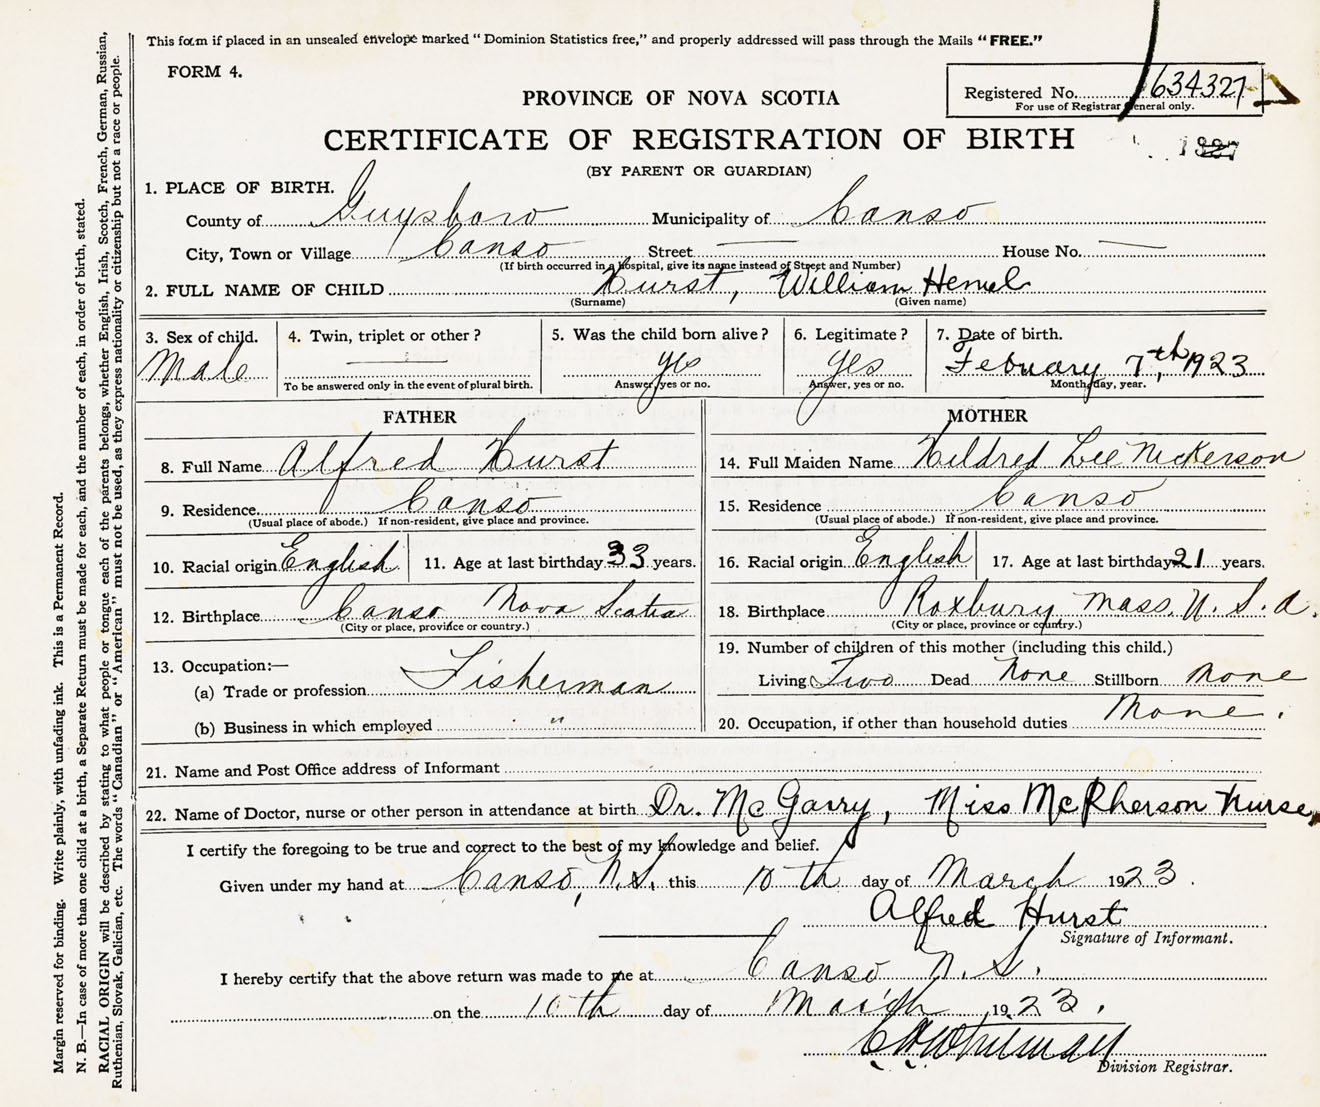 This form if placed in an unsealed envelope marked "Dominion Statistics free," and properly addressed will pass through the Mails "FREE."
FORM 4.
Registered No. 634327
For use of Registrar General only.
PROVINCE OF NOVA SCOTIA
CERTIFICATE OF REGISTRATION OF BIRTH
(BY PARENT OR GUARDIAN)
1. PLACE OF BIRTH.
County of Guysboro Municipality of Canso
City, Town or Village Canso Street — House No. —
(If birth occurred in a hospital, give its name instead of Street and Number)
2. FULL NAME OF CHILD Hurst, William
(Surname) (Given name)
3. Sex of child. Male
4. Twin, triplet or other? —
To be answered only in the event of plural birth.
5. Was the child born alive? yes
Answer, yes or no.
6. Legitimate? yes
Answer, yes or no.
7. Date of birth.
February 7th, 1923
Month, day, year.
FATHER
8. Full Name Alfred Hurst
9. Residence Canso
(Usual place of abode.) If non-resident, give place and province.
10. Racial origin English 11. Age at last birthday 33 years.
12. Birthplace Canso Nova Scotia
(City or place, province or country.)
13. Occupation:—
(a) Trade or profession Fisherman
(b) Business in which employed "
MOTHER
14. Full Maiden Name Hildred Lee Nickerson
15. Residence Canso
(Usual place of abode.) If non-resident, give place and province.
16. Racial origin English 17. Age at last birthday 21 years.
18. Birthplace Roxbury Mass. U. S. A.
(City or place, province or country.)
19. Number of children of this mother (including this child.)
Living Two Dead None Stillborn None
20. Occupation, if other than household duties None.
21. Name and Post Office address of Informant
22. Name of Doctor, nurse or other person in attendance at birth Dr. McGarry, Miss McPherson Nurse,
I certify the foregoing to be true and correct to the best of my knowledge and belief.
Given under my hand at Canso, N.S. this 10th day of March 1923.
Alfred Hurst
Signature of Informant.
I hereby certify that the above return was made to me at Canso N.S.
on the 10th day of March 1923.
Division Registrar.
Margin reserved for binding. Write plainly, with unfading ink. This is a Permanent Record.
N. B.—In case of more than one child at a birth, a Separate Return must be made for each, and the number of each, in order of birth, stated.
RACIAL ORIGIN will be described by stating to what people or tongue each of the parents belongs, whether English, Irish, Scotch, French, German, Russian,
Ruthenian, Slovak, Galician, etc. The words "Canadian" or "American" must not be used, as they express nationality or citizenship but not a race or people.